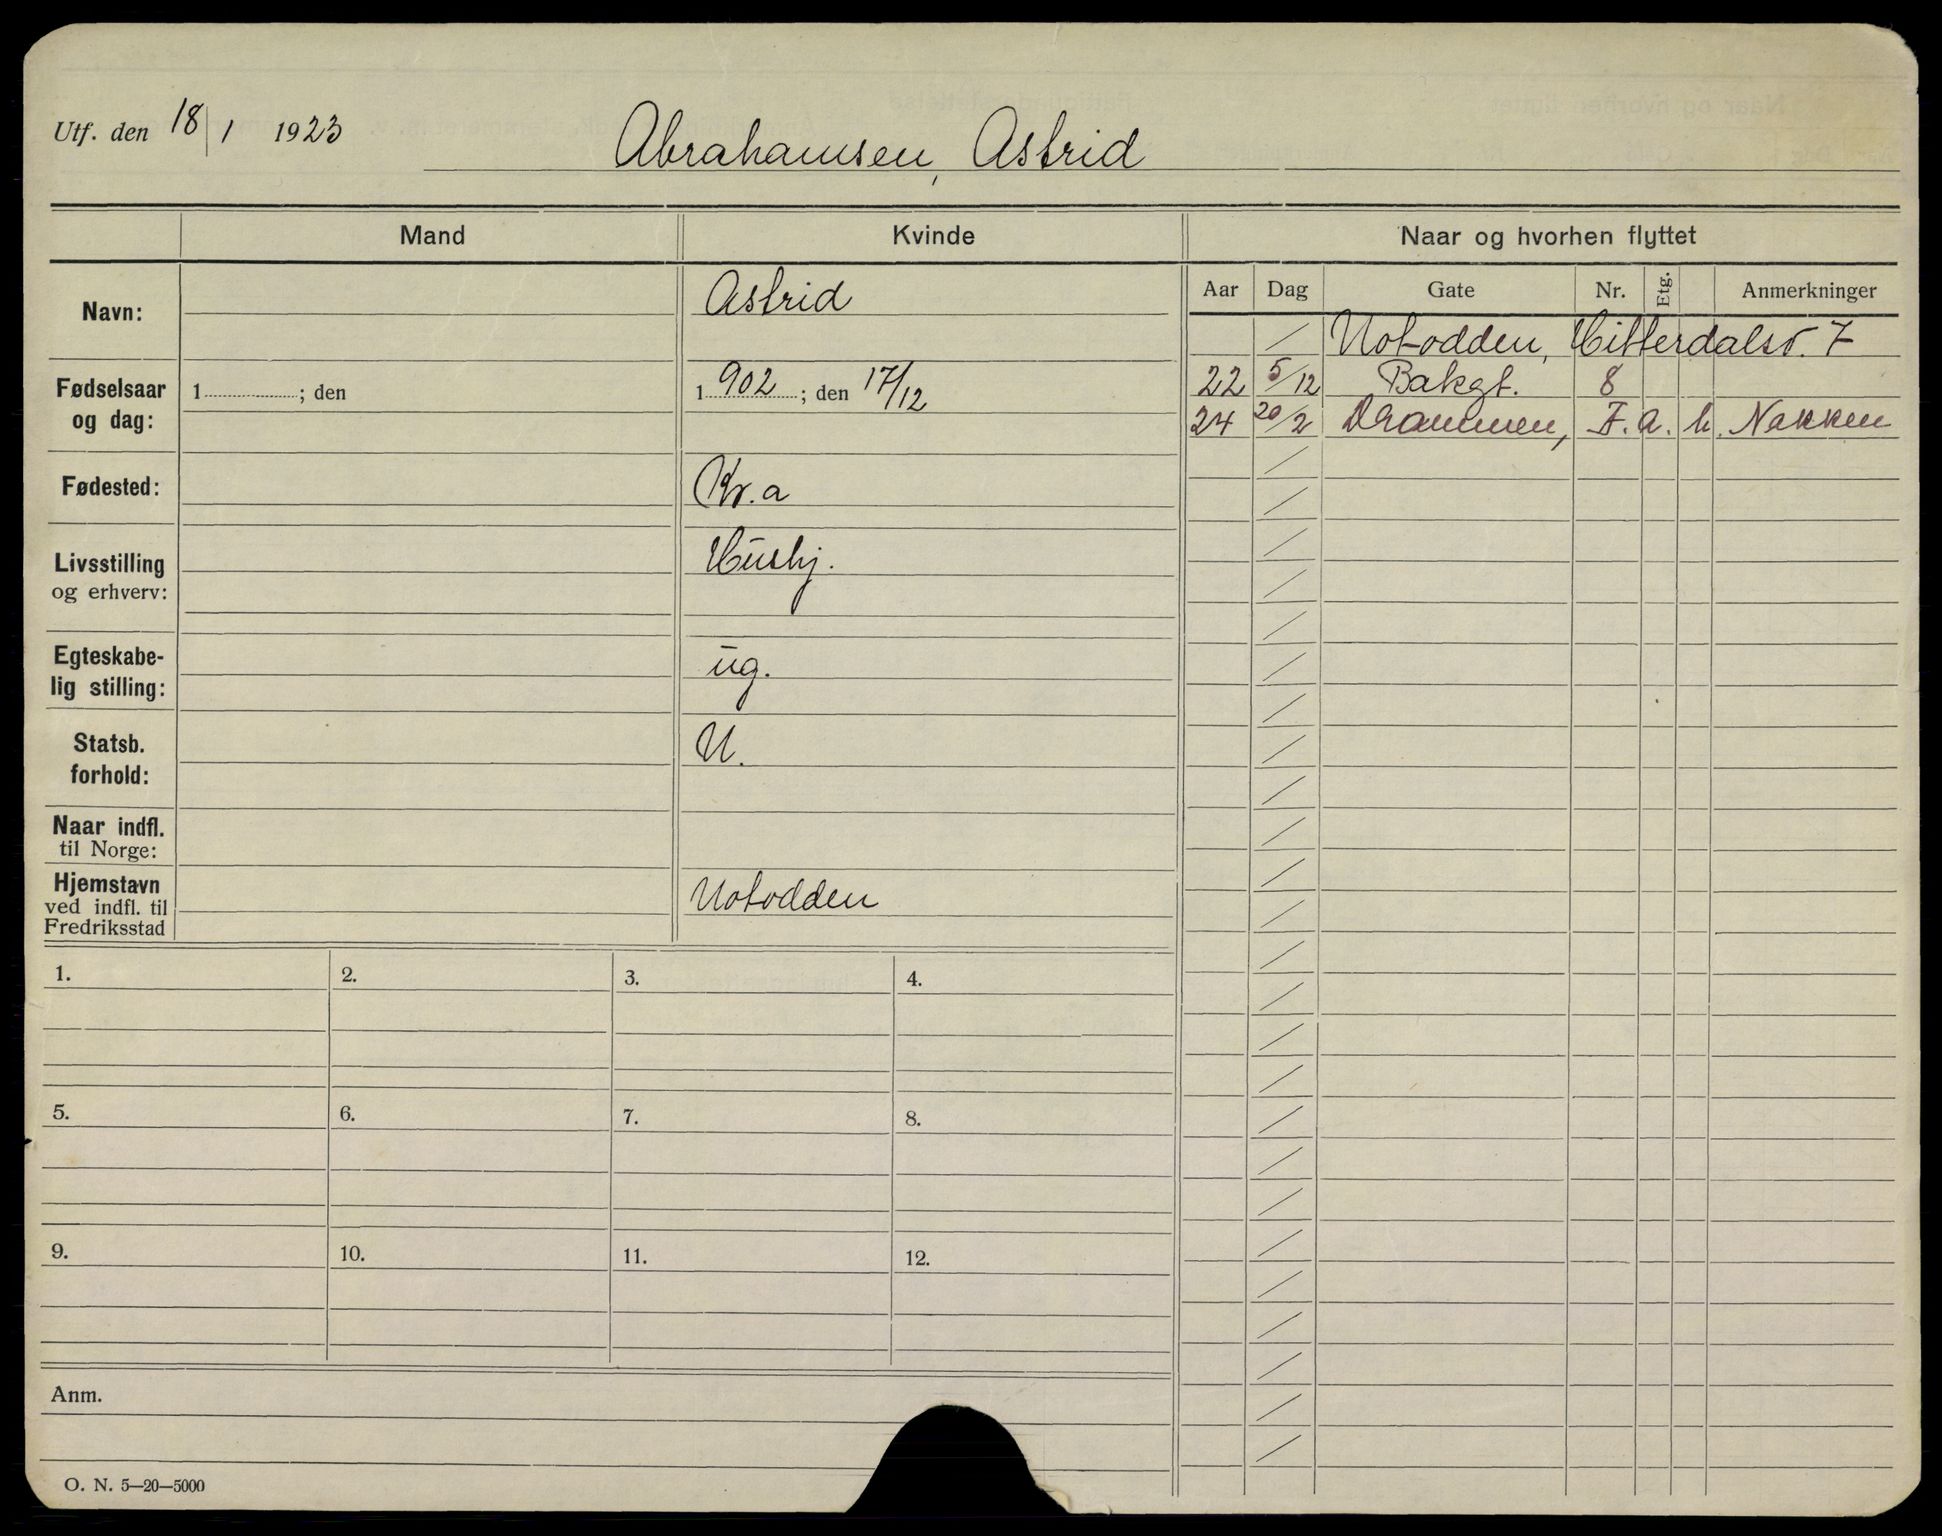 Utf. den 18/1 1923
Abrahamsen, Astrid
Mand Kvinde Naar og hvorhen flyttet
Aar Dag Gate Nr. Etg. Anmerkninger
Navn: Astrid
Fødselsaar og dag: 1 ; den 1902 ; den 17/12
Fødested: Kr.a
Livsstilling og erhverv: Hushj.
Egteskabe-
lig stilling: ug.
Statsb. forhold: N.
Naar indfl. til Norge:
Hjemstavn ved indfl. til Fredriksstad Notodden
/ Notodden, Hitterdalsv. 7
22 5/12 Bakgt. 8
24 20/2 Drammen, F. a. h. Nakken
1. 2. 3. 4.
5. 6. 7. 8.
9. 10. 11. 12.
Anm.
O. N. 5—20—5000